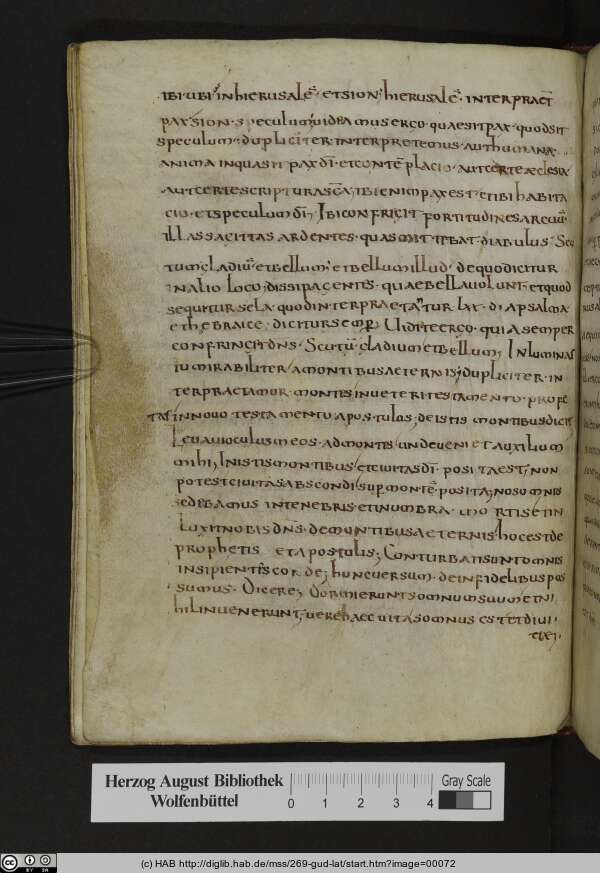 ibi ubi in hierusalē · et sion · hierusalē · interpraet̄
pax sion · speculum uideamus ergo · quae sit pax · quod sit
speculum · dupliciter · interpretemus · aut humana
anima in qua sit pax dī · et contēplacio · aut certe aeclesia
aut certe scripturas sc̄a ibi enim pax est · et ibi habita
cio · et speculum dī; Ibi confrigit fortitudines arcuū
illas sagittas ardentes · quas mittebat · diabulus Scu
tum gladiū et bellum · et bellum illud · de quo dicitur
in alio loco; dissipa gentes · quae bella uolunt · et quod
sequitur sela · quod interpraetatur lxx · diapsalma
et hebraice · dicitur semp̄ Uidete ergo · quia semper
confringit dn̄s · Scutū gladium et bellum; Inluminas
tu mirabiliter a montibus aeternis; dupliciter · in
terpraetamur · montis in ueteri testamento · profe
tas in nouo testamento apostulas; de istis montibus dicit
Leuaui oculus meos · ad montis unde ueniet auxilium
mihi; In istis montibus et ciuitas dī · posita est; non
potest ciuitas abscondi sup̄ montē · posita; nos omnis
sedebamus in tenebris · et in umbra · mortis et in
luxit nobis dn̄s · de montibus aeternis hoc est de
prophetis et apostulis; Conturbati sunt omnis
insipientis corde; hunc uersum · de infidelibus pos
sumus · dicere; Dormierunt somnum suum et ni
hil inuenerunt; uere haec uita somnus est et diui
ciae;
Herzog August Bibliothek
Wolfenbüttel
0 1 2 3 4
Gray Scale
(c) HAB http://diglib.hab.de/mss/269-gud-lat/start.htm?image=00072